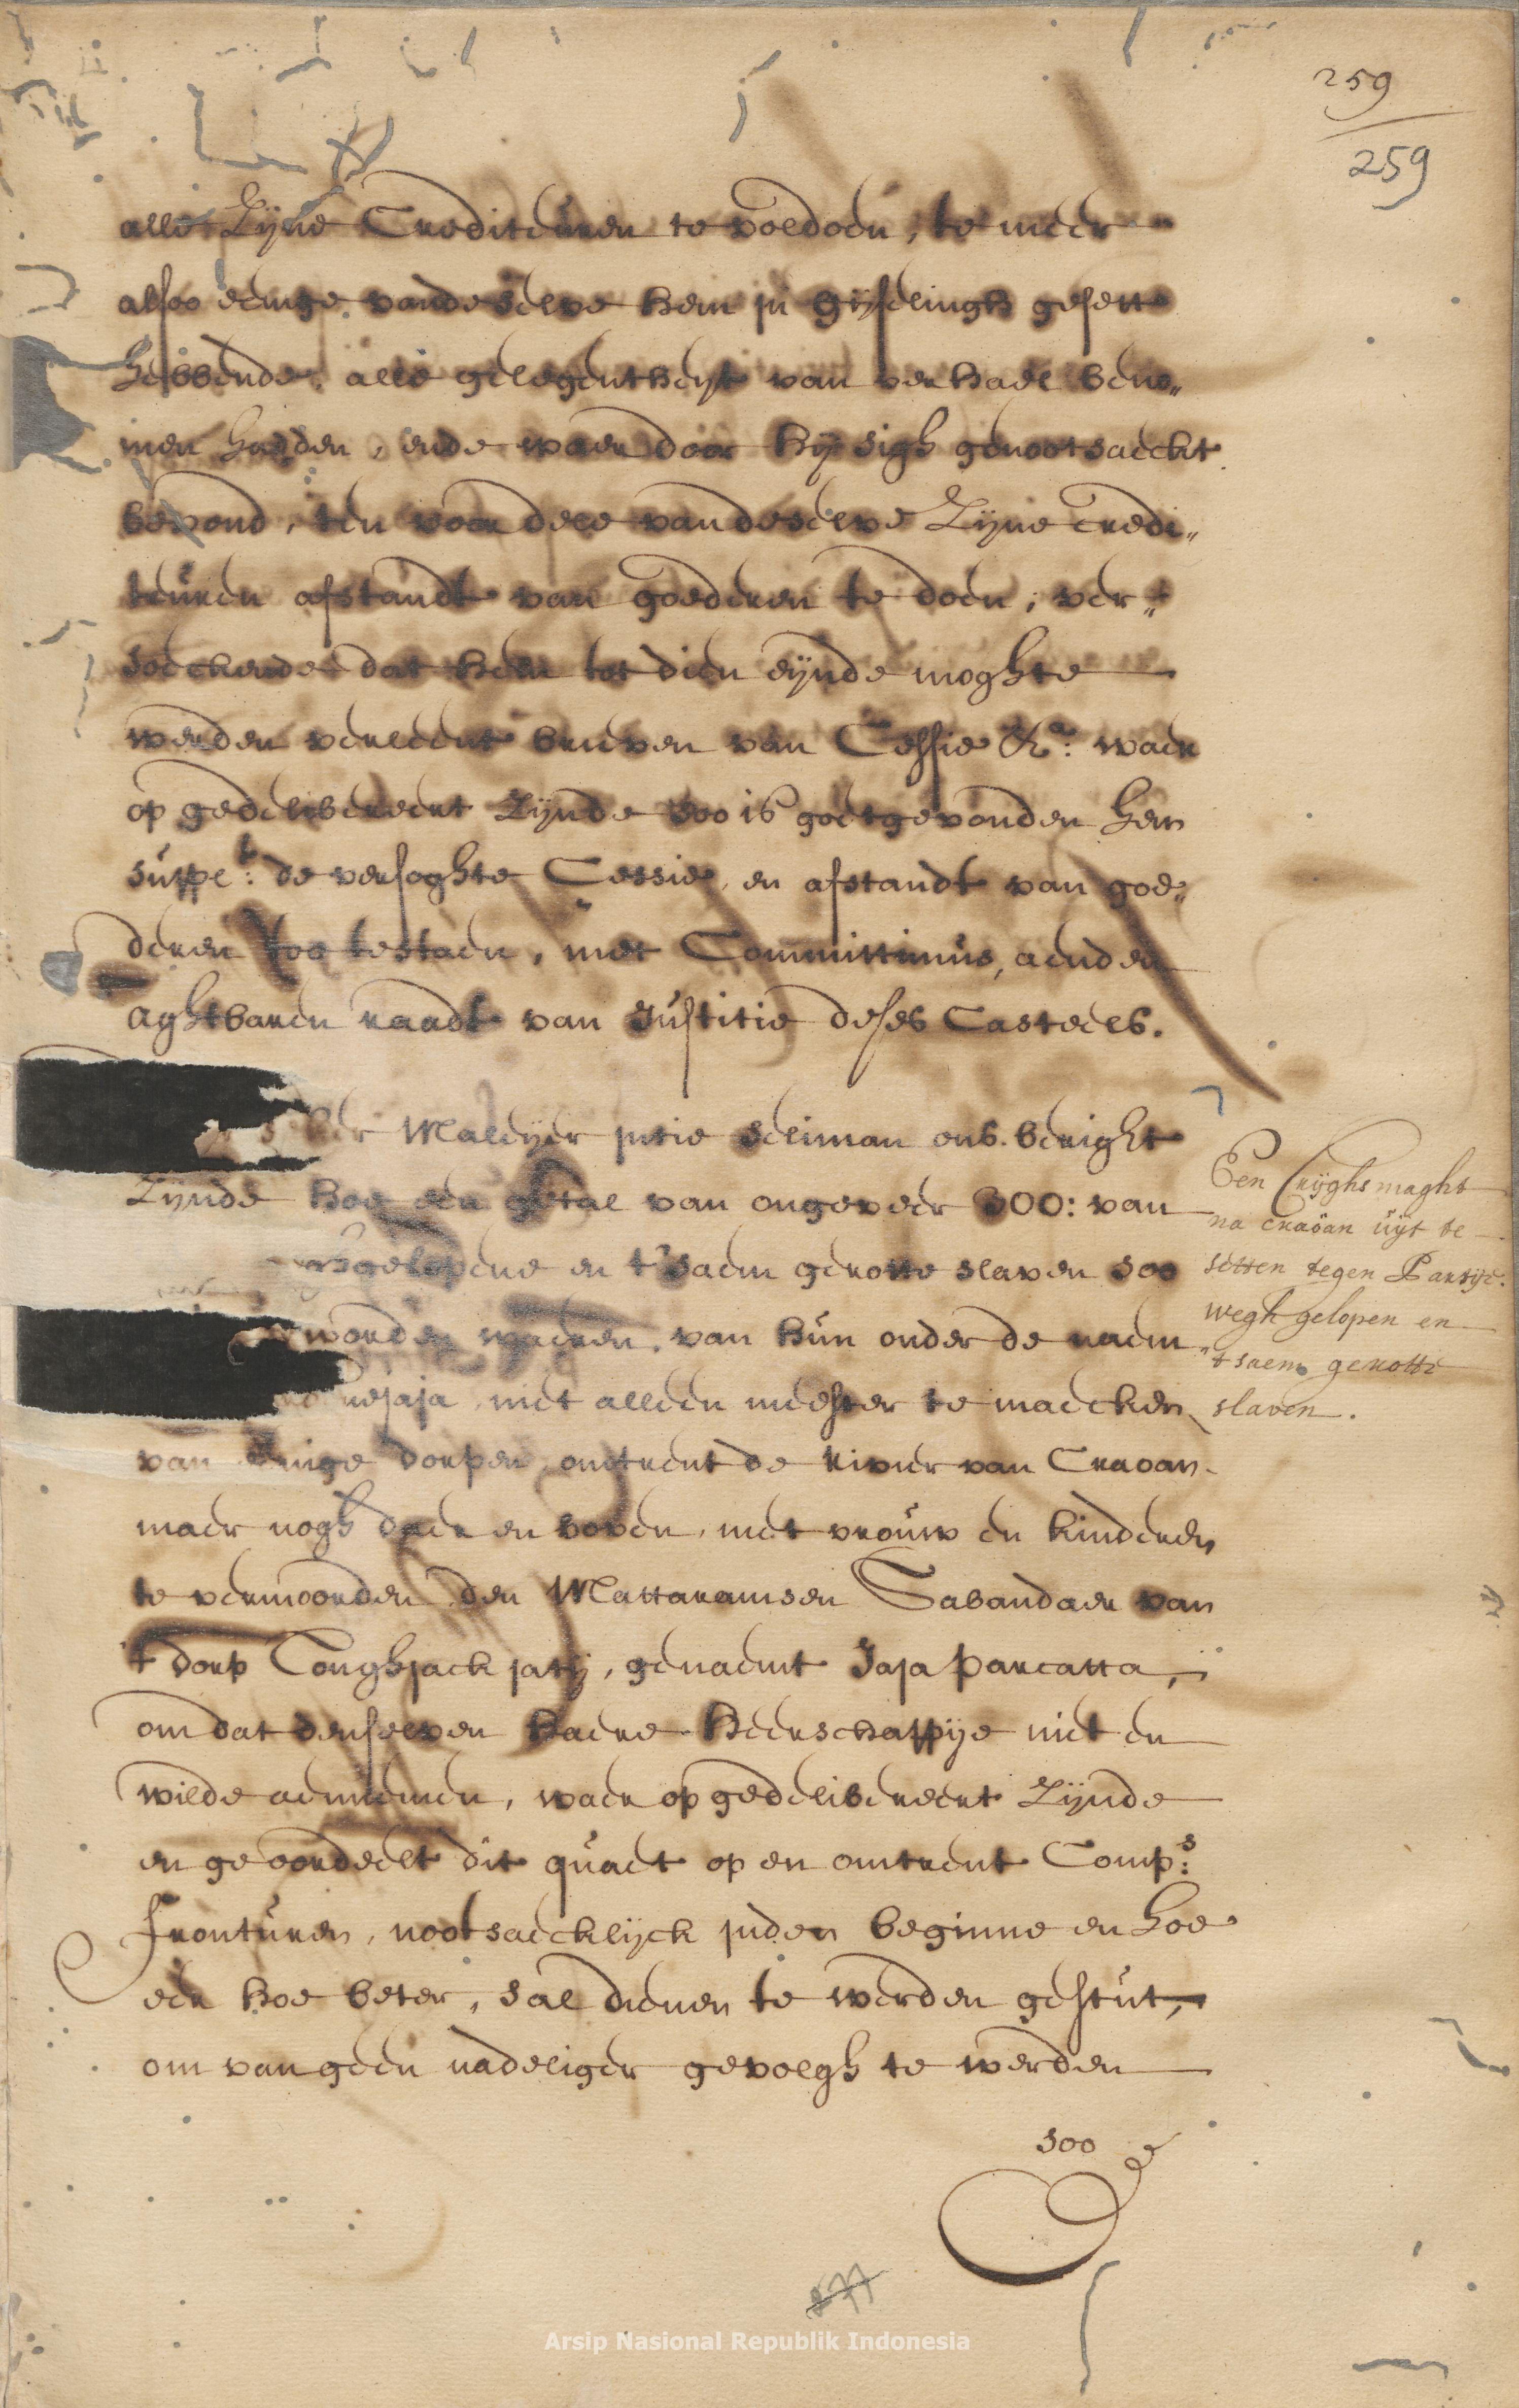 259
259
alle Zijne Crediteuren te voldoen, te meer
alsoo eenige vandeselve hem in Gijselingh geseth
hebbende, alle gelegentheijt van verhael beno„
men hadden, ende waer door hij sigh genootsaeckt
bevond, ten voordele vandeselve Zijne Credi„
teuren afstandt van goederen te doen; ver„
soeckende dat hem tot dien eijnde moghte
werden verleent brieven van Cessie &a: waer
op gedelibereert Zijnde soo is goetgevonden hem
suppt: de versoghte Cessie, en afstandt van goe„
deren toe testaen, met Committimus, aenden
aghtbaren raadt van Justitie deses Casteels.
Maleijer intie Soliman ons beright
Zijnde hoe een getal van ongeveer 300: van
gelopene en t'saem gerotte slaven soo
worden waeren, van hun onder de naem
niet alleen meester te maecken
van eenige dorpen, omtrent de rivier van Craoan
maer nogh daer en boven, met vrouw en kinderen
te vermoorden den Mattaramsen Sabandaer van
't dorp Tonghjack jatij, genaemt Jaja parcatta,
om dat denselven haere heerschappije niet en
wilde aennemen, waer op gedelibereert Zijnde
en geoordeelt dit quaet op en omtrent Comps:
fronturen, nootsaecklijck inden beginne en hoe
eer hoe beter, sal dienen te werden gestut,
om van geen nadeliger gevolgh te werden
soo
Een Crijghsmaght
na Craoan uijt te
setten tegen Partije
wegh gelopen en
t'saem gerotte
slaven.
577
Arsip Nasional Republik Indonesia